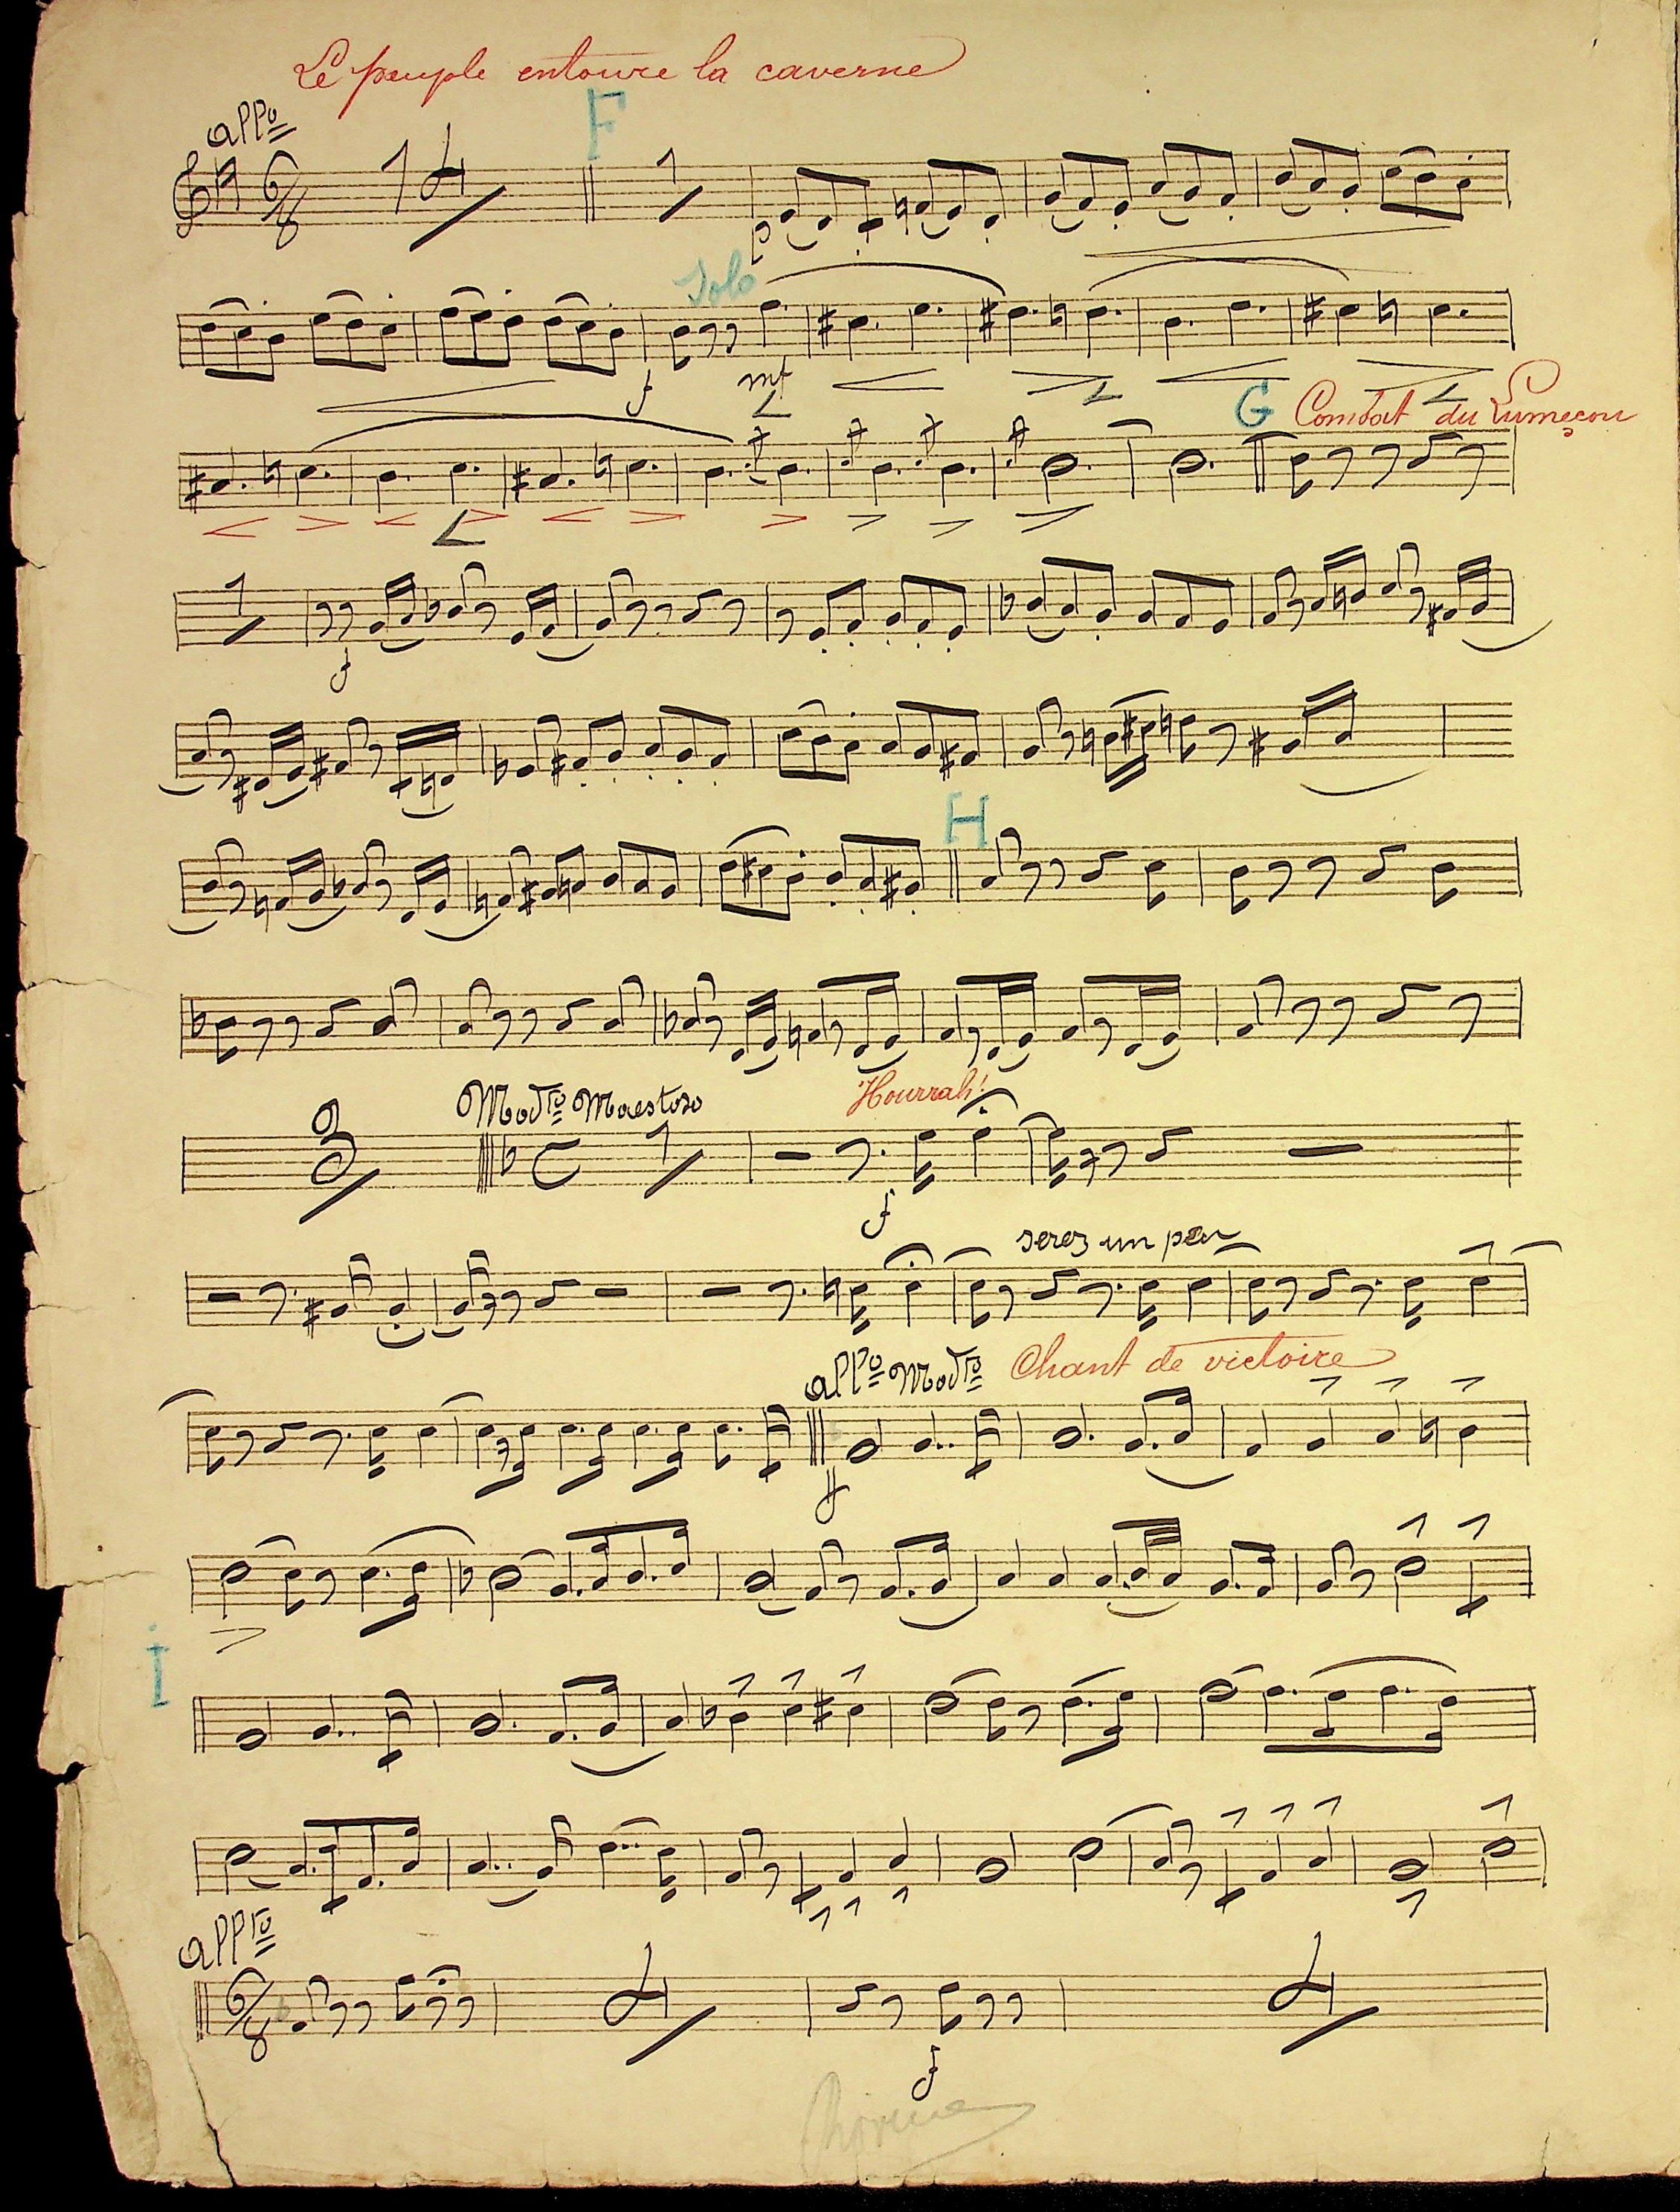 Le peuple entoure la caverne
allº
F
6/8
1
4
1
p
Solo
f
mf
G
Combat du Lumeçon
1
f
H
3
Modto Maestoso
C
1
Hourrah!
f
serez un peu
allº Modto
Chant de victoire
ff
I
allto
6/8
4
f
4